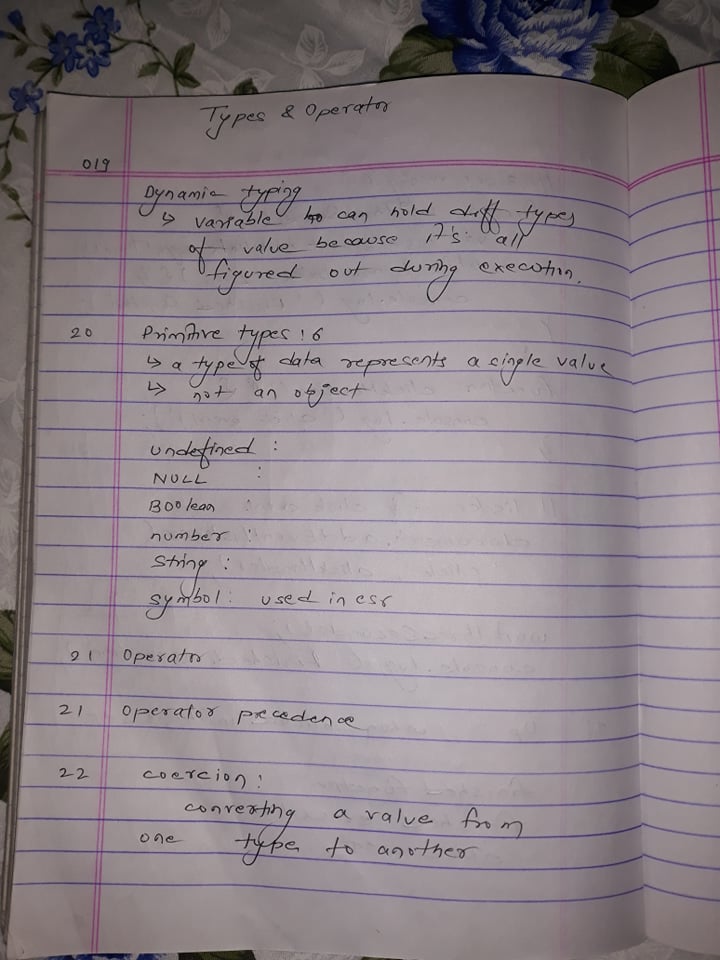 Types & Operator
019
Dynamic typing
↳ variable can hold diff types
of value because it's all
figured out during execution.
20 Primitive types : 6
↳ a type of data represents a single value
↳ not an object
undefined :
NULL :
Boolean :
number :
String :
symbol : used in es6
21 Operator
21 operator precedence
22 coercion :
converting a value from
one type to another